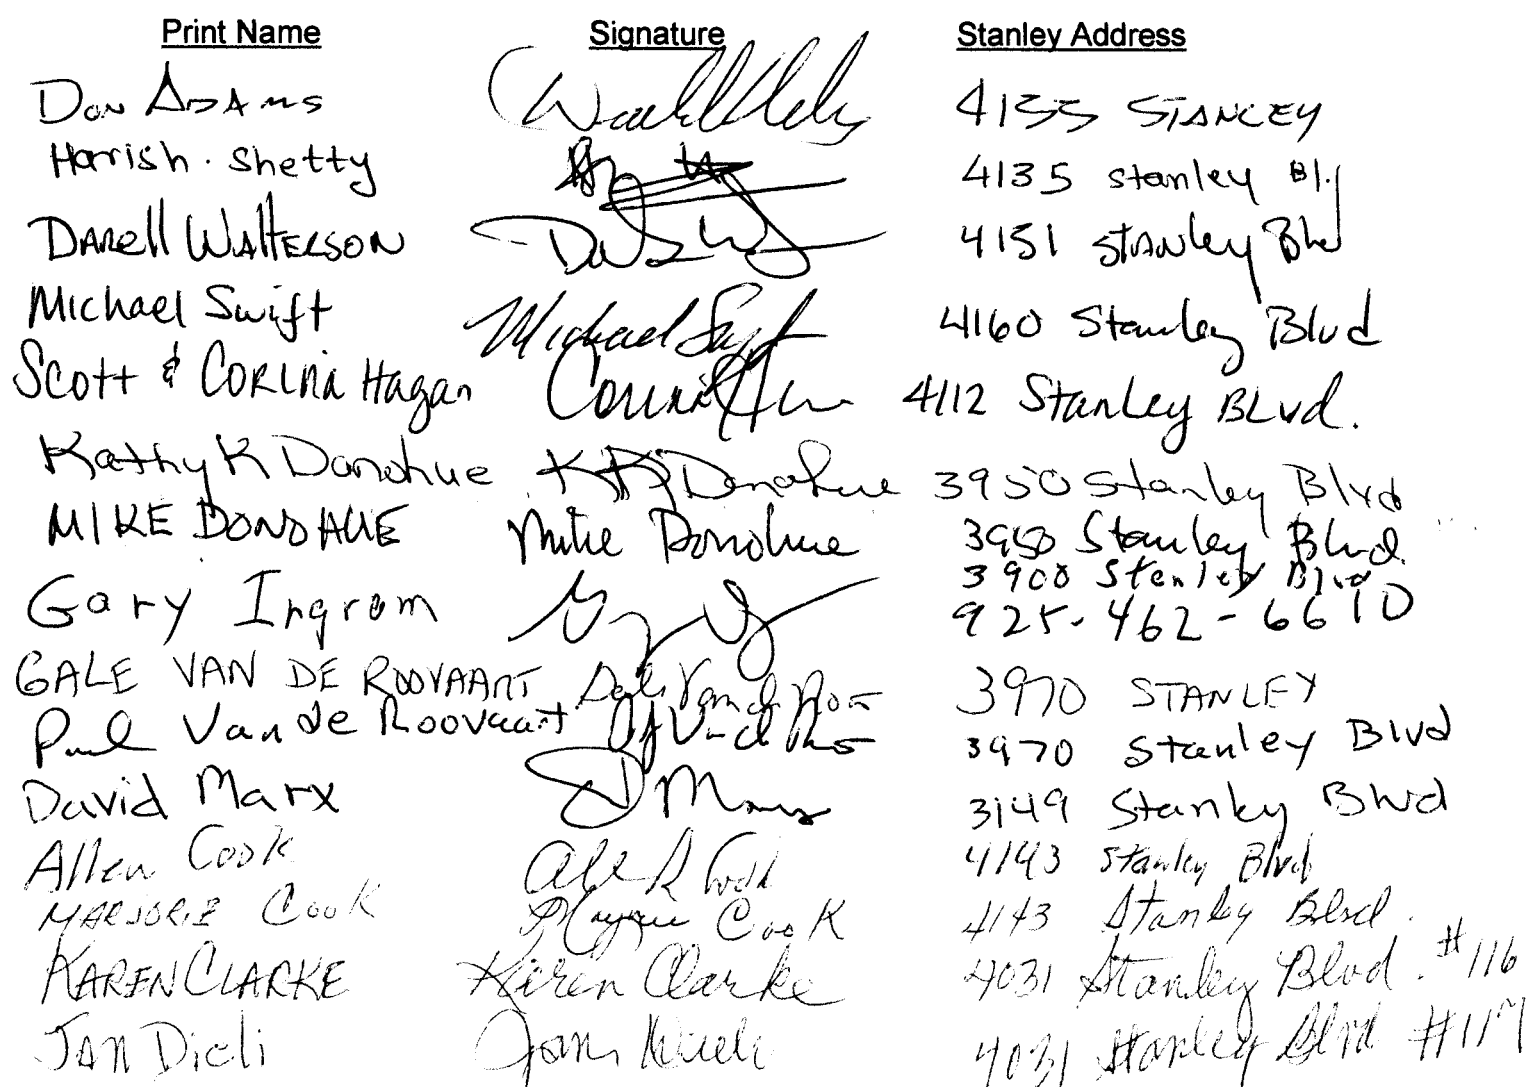 Print Name Signature Stanley Address
Don Adams 4155 STANLEY
Harrish. Shetty 4135 stanley Bl.
DARell WAlTERSON 4151 StANley Blvd
Michael Swift Michael Swift 4160 Stanley Blvd
Scott & CORINA Hagan Corina 4112 Stanley BLvd.
Kathy K Donohue KK Donohue 3950 Stanley Blvd
MIKE DONOHUE Mike Donohue 3950 Stanley Blvd.
Gary Ingram 3900 Stanley Blvd
925-462-6610
GALE VAN DE ROOVAART Gale Van de Roo 3970 STANLEY
Paul Van de Roovaart 3970 Stanley Blvd
David Marx D Marx 3149 Stanley Blvd
Allen Cook Cook 4143 Stanley Blvd
MARJORIE Cook Cook 4143 Stanley Blvd.
KAREN CLARKE Karen Clarke 4031 Stanley Blvd. #116
JAN Dieli Jan Dieli 4031 Stanley Blvd #117